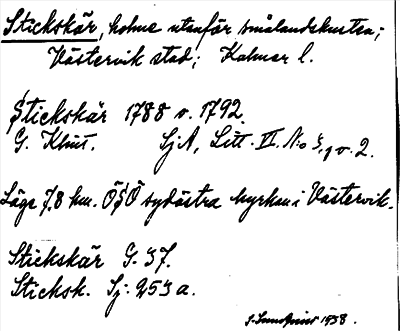 Stickskär, holme utanför smålandskusten;
Västervik stad; Kalmar l.
Stickskär 1788 o. 1792.
G. Klint. SjA, Litt. VI. N:o
Läge 7,8 km. ÖSÖ sydöstra kyrkan i Västervik.
Stickskär G. 37.
Sticksk. Sj: 253 a.
1938.